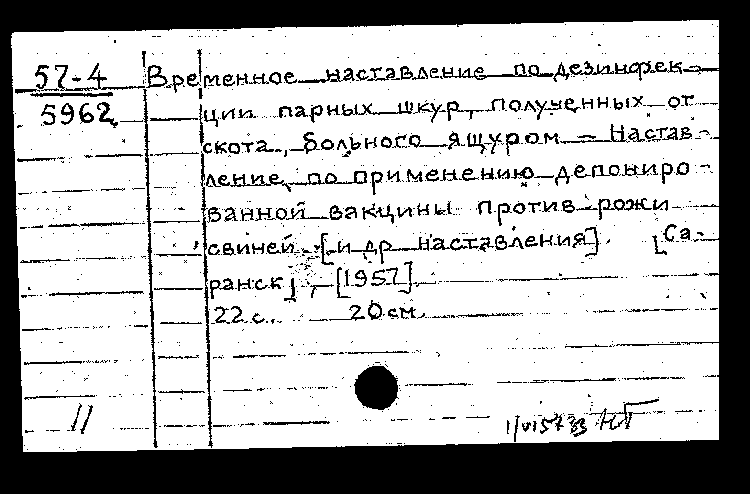 57-4
5962
Временное наставление по дезинфек-
ции парных шкур, полученных от
скота, больного ящуром - Настав-
ление по применению депониро-
ванной вакцины против рожи
свиней. [и др наставления]. [Са-
ранск], [1957].
22 с. 20 см.
11